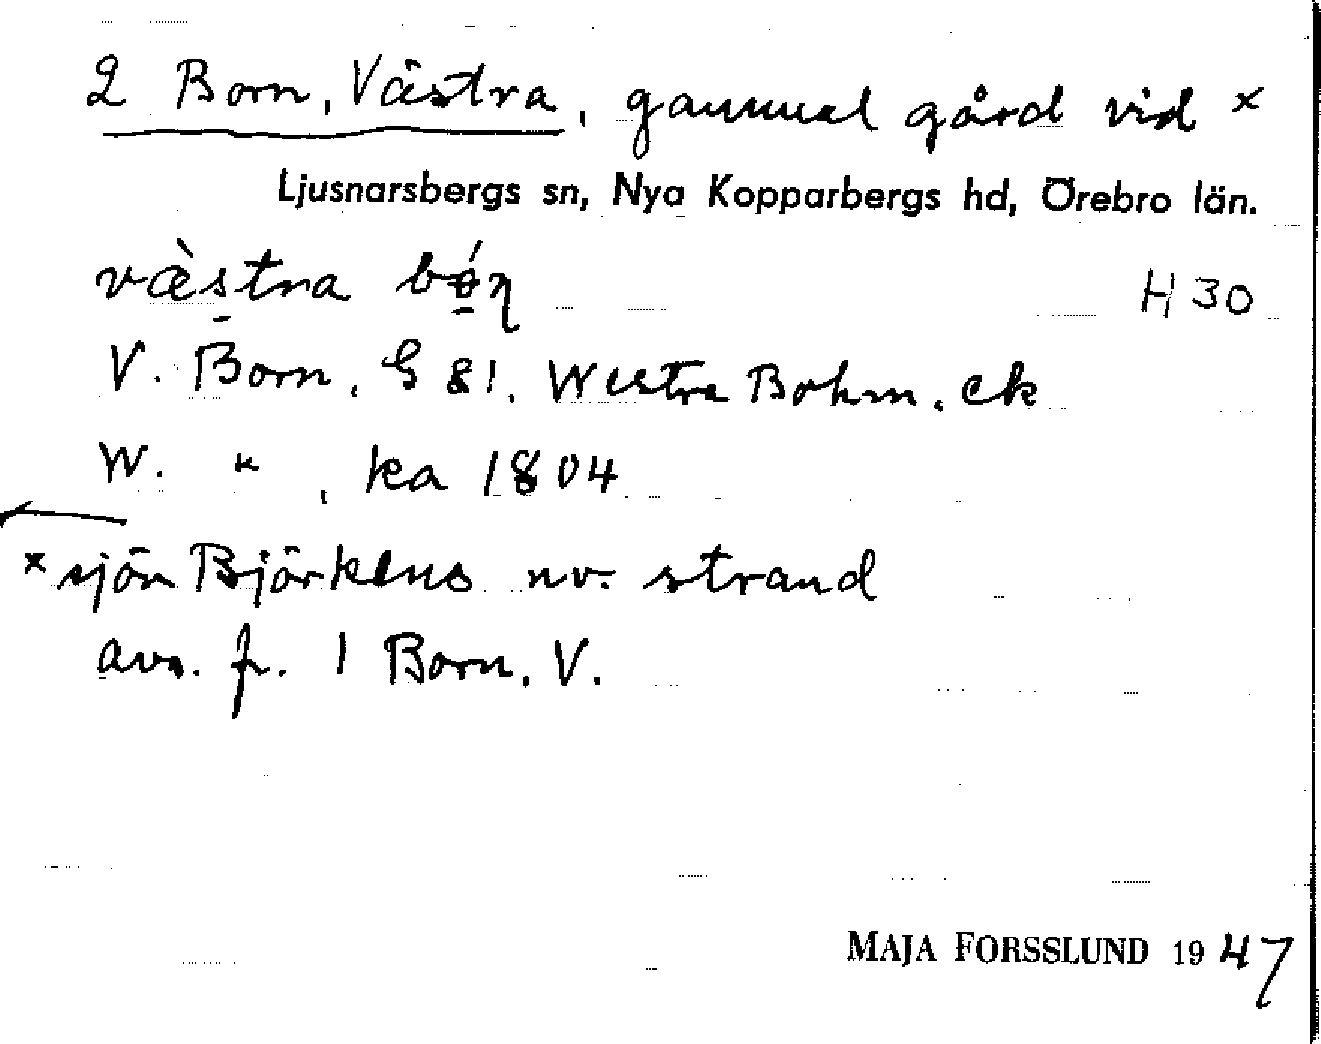 2 Born, Västra, gammal gård vid x
Ljusnarsbergs sn, Nya Kopparbergs hd, Örebro län.
væ̀stra bǿɳ H 30
V. Born, G 81. Westra Bohrn, ek
W. " , ka 1804
x sjön Björkens nv. strand
avs. fr. 1 Born, V.
MAJA FORSSLUND 1947